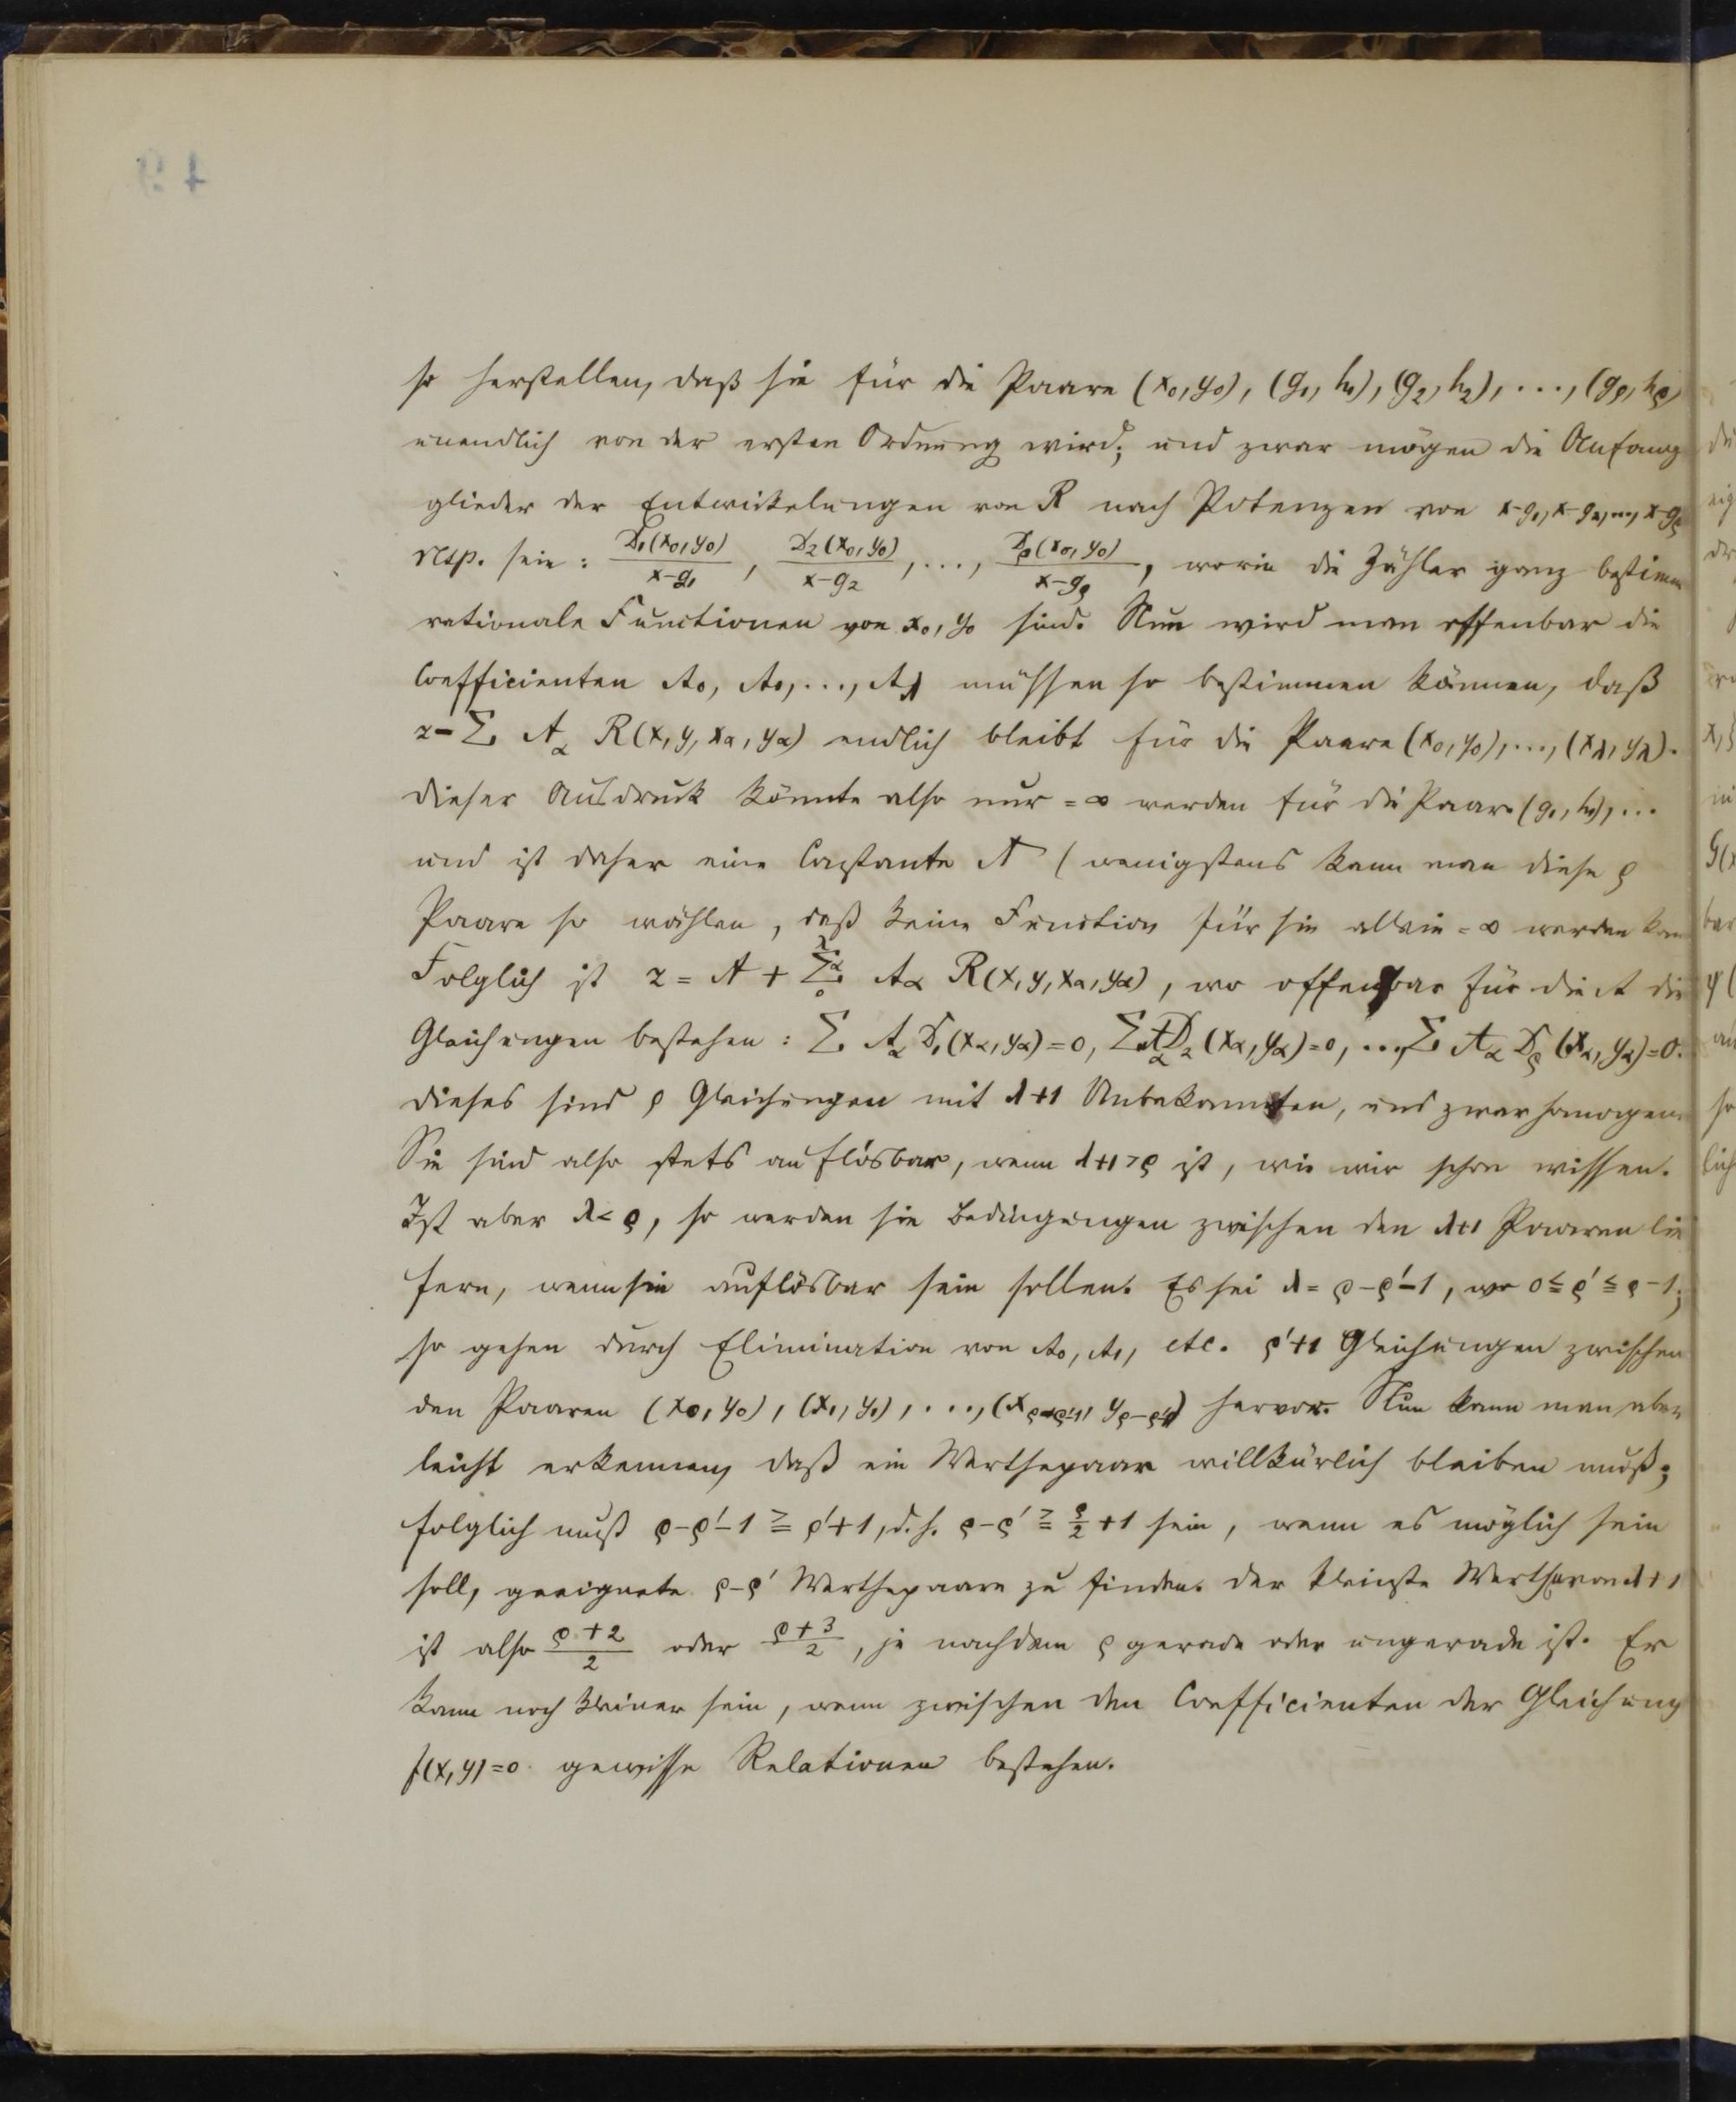 so herstellen, daß sie für die Paare (x₀, y₀), (g₁, h₁), (g₂, h₂), ..., (gρ, hρ)
unendlich von der ersten Ordnung wird; und zwar mögen die Anfangs
glieder der Entwickelungen von R nach Potenzen von x-g₁, x-g₂, ..., x-gρ
resp. sein: D₁(x₀, y₀)/(x-g₁), D₂(x₀, y₀)/(x-g₂), ..., Dρ(x₀, y₀)/(x-gρ), worin die Zähler ganz bestimm
rationale Functionen von x₀, y₀ sind. Nun wird man offenbar die
Coefficienten A₀, A₁, ..., Aλ müssen so bestimmen können, daß
z - Σ Aα R(x, y, xα, yα) endlich bleibt für die Paare (x₀, y₀), ..., (xλ, yλ).
Dieser Ausdruck könnte also nur = ∞ werden für die Paare (g₁, h₁), ...
und ist daher eine Constante A (wenigstens kann man diese ρ
Paare so wählen, daß keine Function für sie allein = ∞ werden kann
Folglich ist z = A + Σ Aα R(x, y, xα, yα), wo offenbar für die A die
Gleichungen bestehen: Σ Aα D₁(xα, yα) = 0, Σ Aα D₂(xα, yα) = 0, ..., Σ Aα Dρ(xα, yα) = 0.
Dieses sind ρ Gleichungen mit λ+1 Unbekannten, und zwar homogene
Sie sind also stets auflösbar, wenn λ+1 > ρ ist, wie wir schon wissen.
Ist aber λ < ρ, so werden sie Bedingungen zwischen den λ+1 Paaren lie
fern, wenn sie auflösbar sein sollen. Es sei λ = ρ-ρ'-1, wo 0 ≦ ρ' ≦ ρ-1;
so gehen durch Elimination von A₀, A₁, etc. ρ'+1 Gleichungen zwischen
den Paaren (x₀, y₀), (x₁, y₁), ..., (xρ-ρ'-1, yρ-ρ'-1) hervor. Nun kann man aber
leicht erkennen, daß ein Werthepaar willkürlich bleiben muß;
folglich muß ρ-ρ'-1 ≧ ρ'+1, d. h. ρ-ρ' ≧ ρ/2 + 1 sein, wenn es möglich sein
soll, geeignete ρ-ρ' Werthepaare zu finden. Der kleinste Werth von λ+1
ist also (ρ+2)/2 oder (ρ+3)/2, je nachdem ρ gerade oder ungerade ist. Er
kann noch kleiner sein, wenn zwischen den Coefficienten der Gleichung
f(x, y) = 0 gewisse Relationen bestehen.